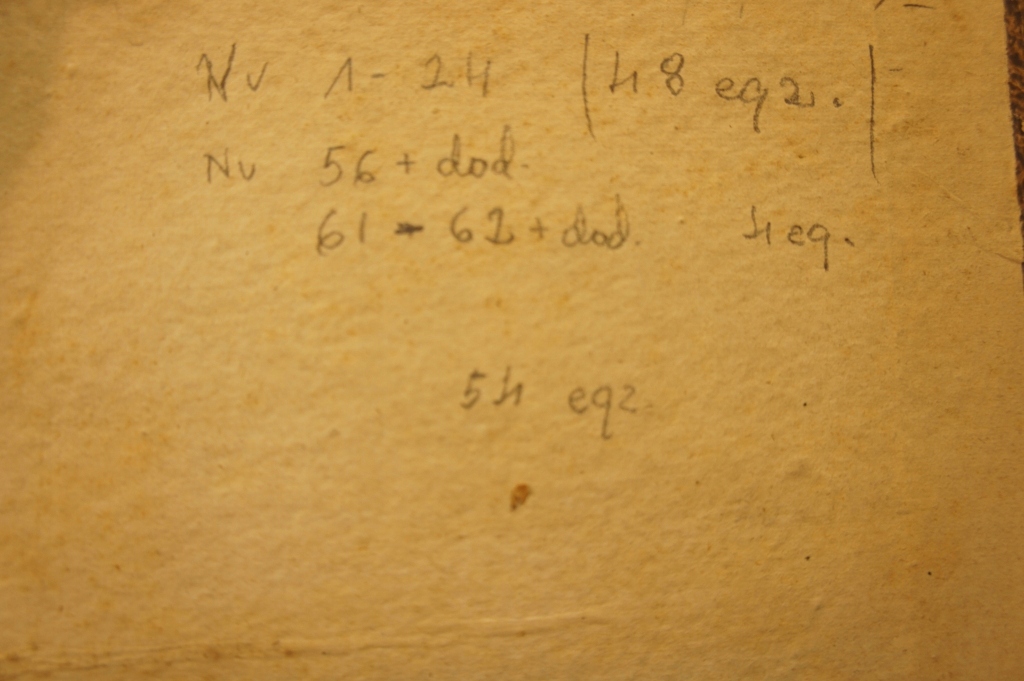 Nv 1-24 (48 eqz.)
Nv 56 + dod.
61 - 62 + dod. 4 eq.
54 eqz.